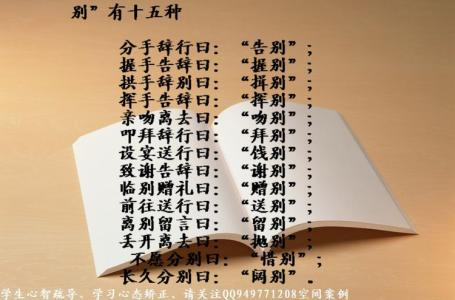 别”有十五种
分手辞行曰：“告别”；
握手告辞曰：“握别”；
拱手辞别曰：“揖别”；
挥手告辞曰：“挥别”；
亲吻离去曰：“吻别”；
叩拜辞行曰：“拜别”；
设宴送行曰：“饯别”；
致谢告辞曰：“谢别”；
临别赠礼曰：“赠别”；
前往送行曰：“送别”；
离别留言曰：“留别”；
丢开离去曰：“抛别”；
不愿分别曰：“惜别”；
长久分别曰：“阔别”。
学生心智疏导、学习心态矫正、请关注QQ949771208空间案例